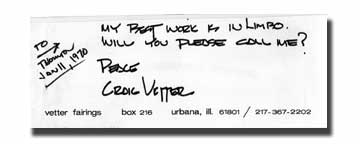 MY BEST WORK IS IN LIMBO.
WILL YOU PLEASE CALL ME?
PEACE
CRAIG VETTER
TO
JAN 11, 1970
vetter fairings box 216 urbana, ill. 61801 / 217-367-2202